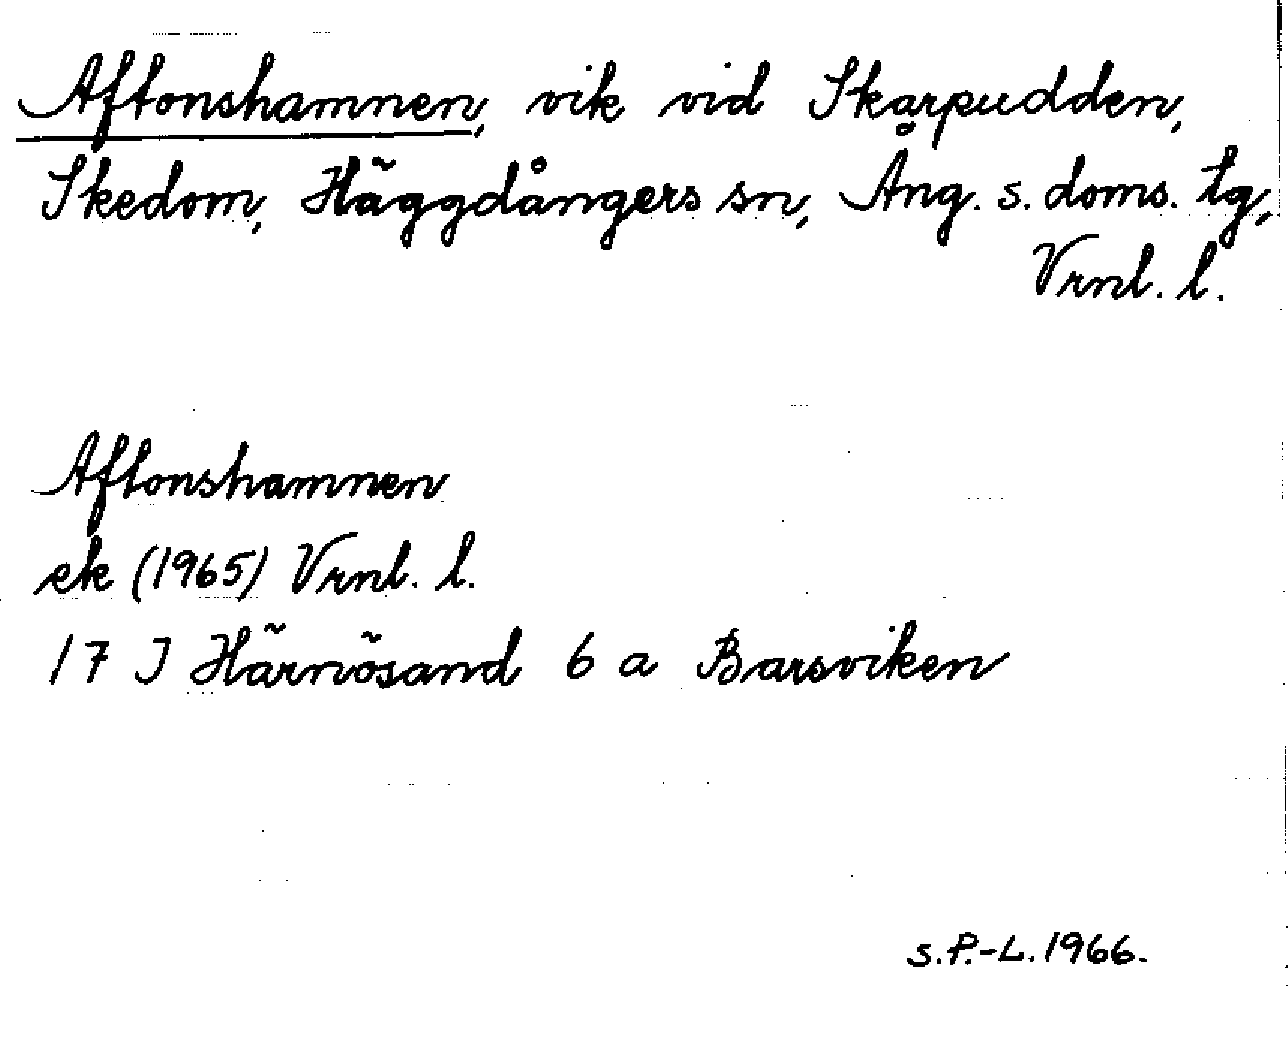 Aftonshamnen, vik vid Skarpudden,
Skedom, Häggdångers sn, Ång. s. doms. tg,
Vrnl. l.
Aftonshamnen
ek (1965) Vrnl. l.
17 I Härnösand 6 a Barsviken
S.P.-L. 1966.